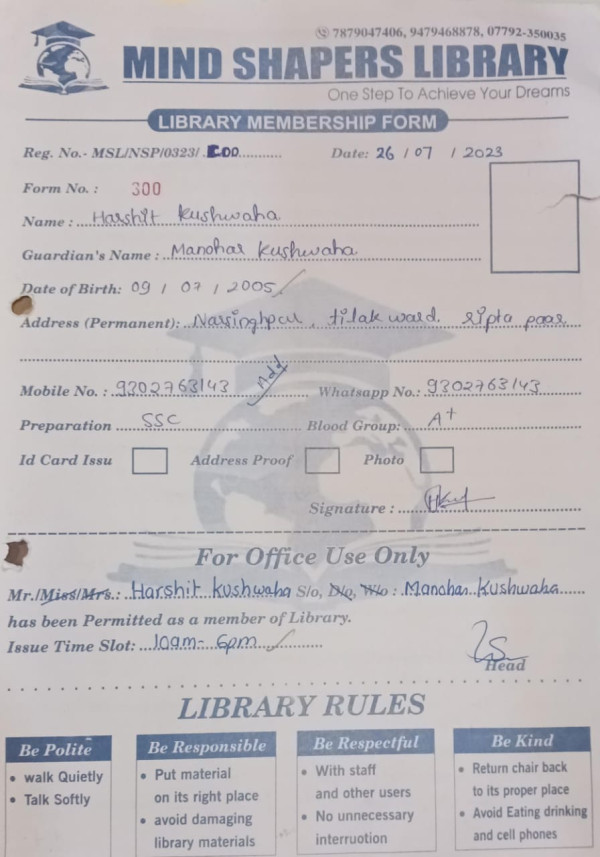 7879047406, 9479468878, 07792-350035
MIND SHAPERS LIBRARY
One Step To Achieve Your Dreams
LIBRARY MEMBERSHIP FORM
Reg. No.- MSL/NSP/0323/. 300 Date: 26 / 07 / 2023
Form No. : 300
Name : Harshit Kushwaha
Guardian's Name : Manohar Kushwaha
Date of Birth: 09 / 07 / 2005
Address (Permanent): Narsinghpur, tilak ward. sipta paar
Add
Mobile No. : 9302763143 Whatsapp No.: 9302763143
Preparation SSC Blood Group: A+
Id Card Issu Address Proof Photo
Signature :
For Office Use Only
Mr./Miss/Mrs.: Harshit Kushwaha S/o, D/o, W/o : Manohar Kushwaha
has been Permitted as a member of Library.
Issue Time Slot: 10am- 6pm
Head
LIBRARY RULES
Be Polite
• walk Quietly
• Talk Softly
Be Responsible
• Put material
on its right place
• avoid damaging
library materials
Be Respectful
• With staff
and other users
• No unnecessary
interruotion
Be Kind
• Return chair back
to its proper place
• Avoid Eating drinking
and cell phones